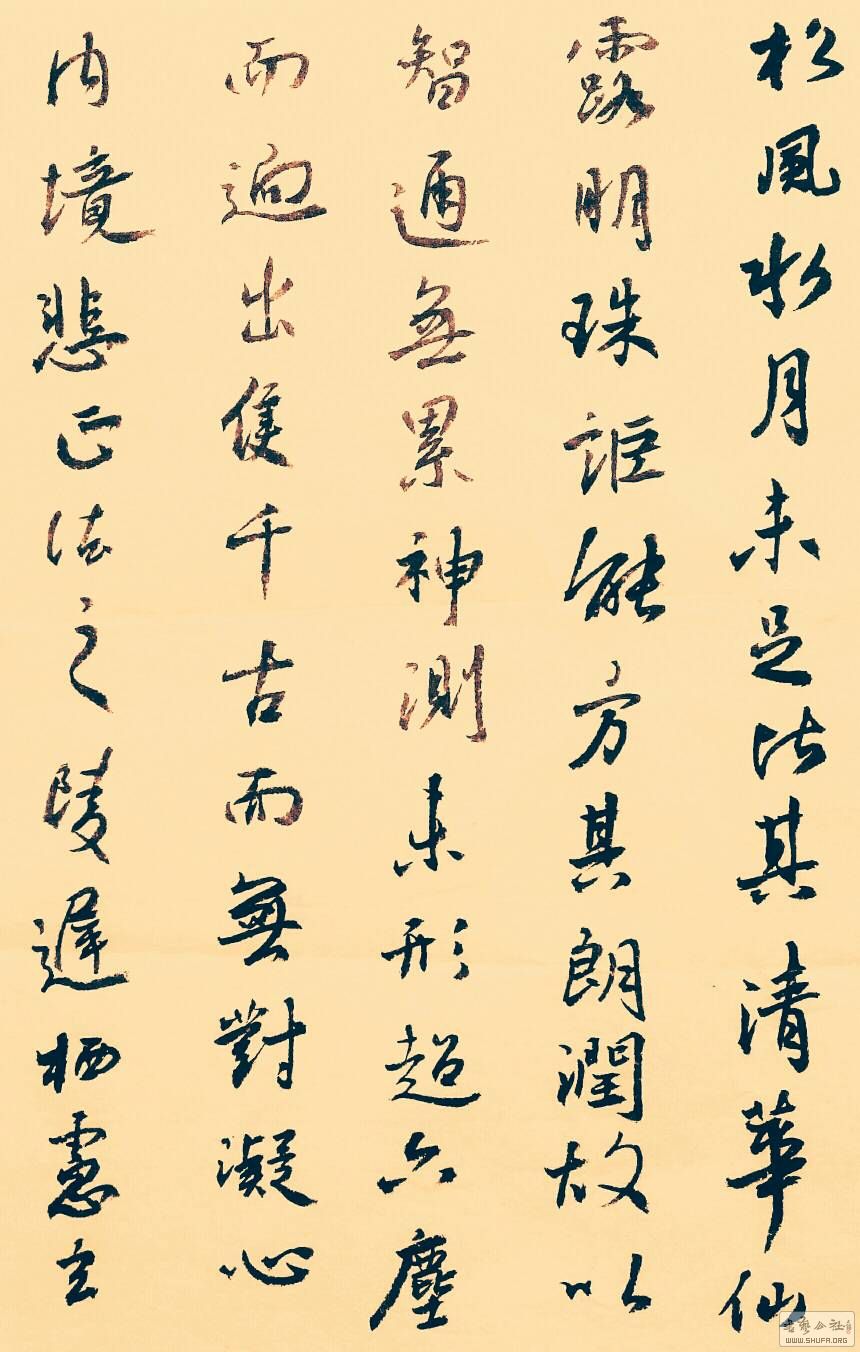 松風水月未足比其清華仙
露明珠詎能方其朗潤故以
智通無累神測未形超六塵
而迥出隻千古而無對凝心
內境悲正法之陵遲栖慮玄
WWW.SHUFA.ORG